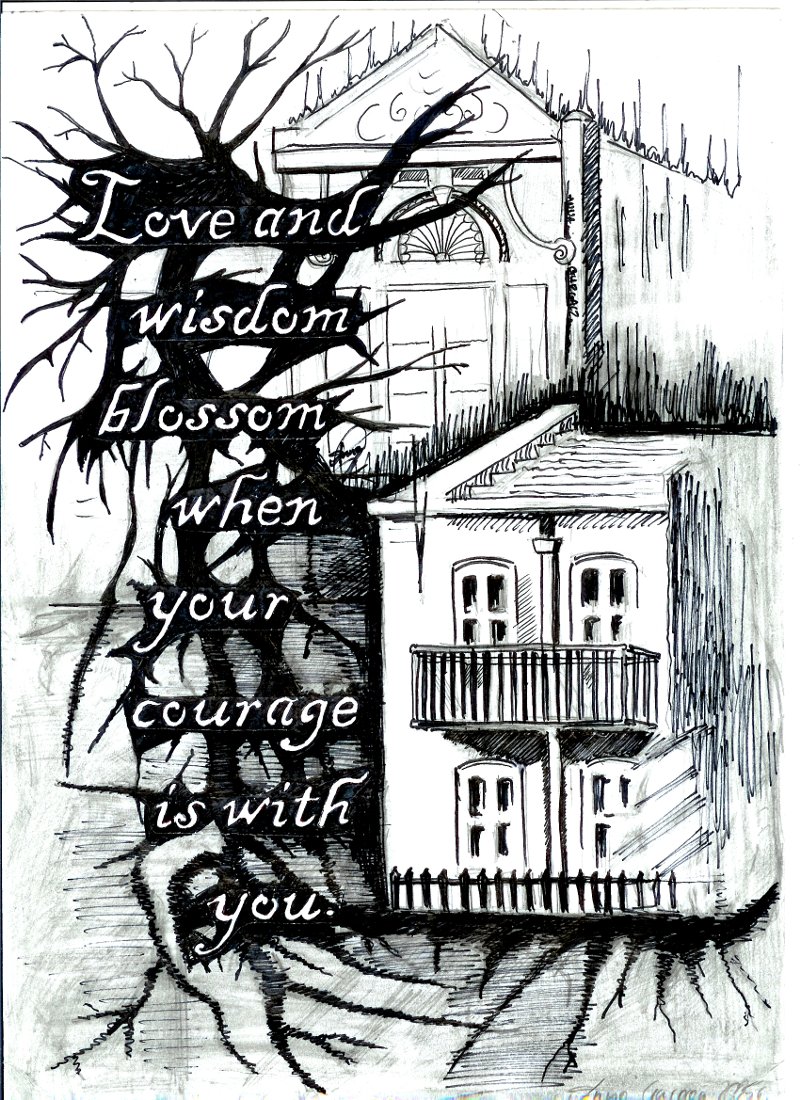 Love and
wisdom
blossom
when
your
courage
is with
you.